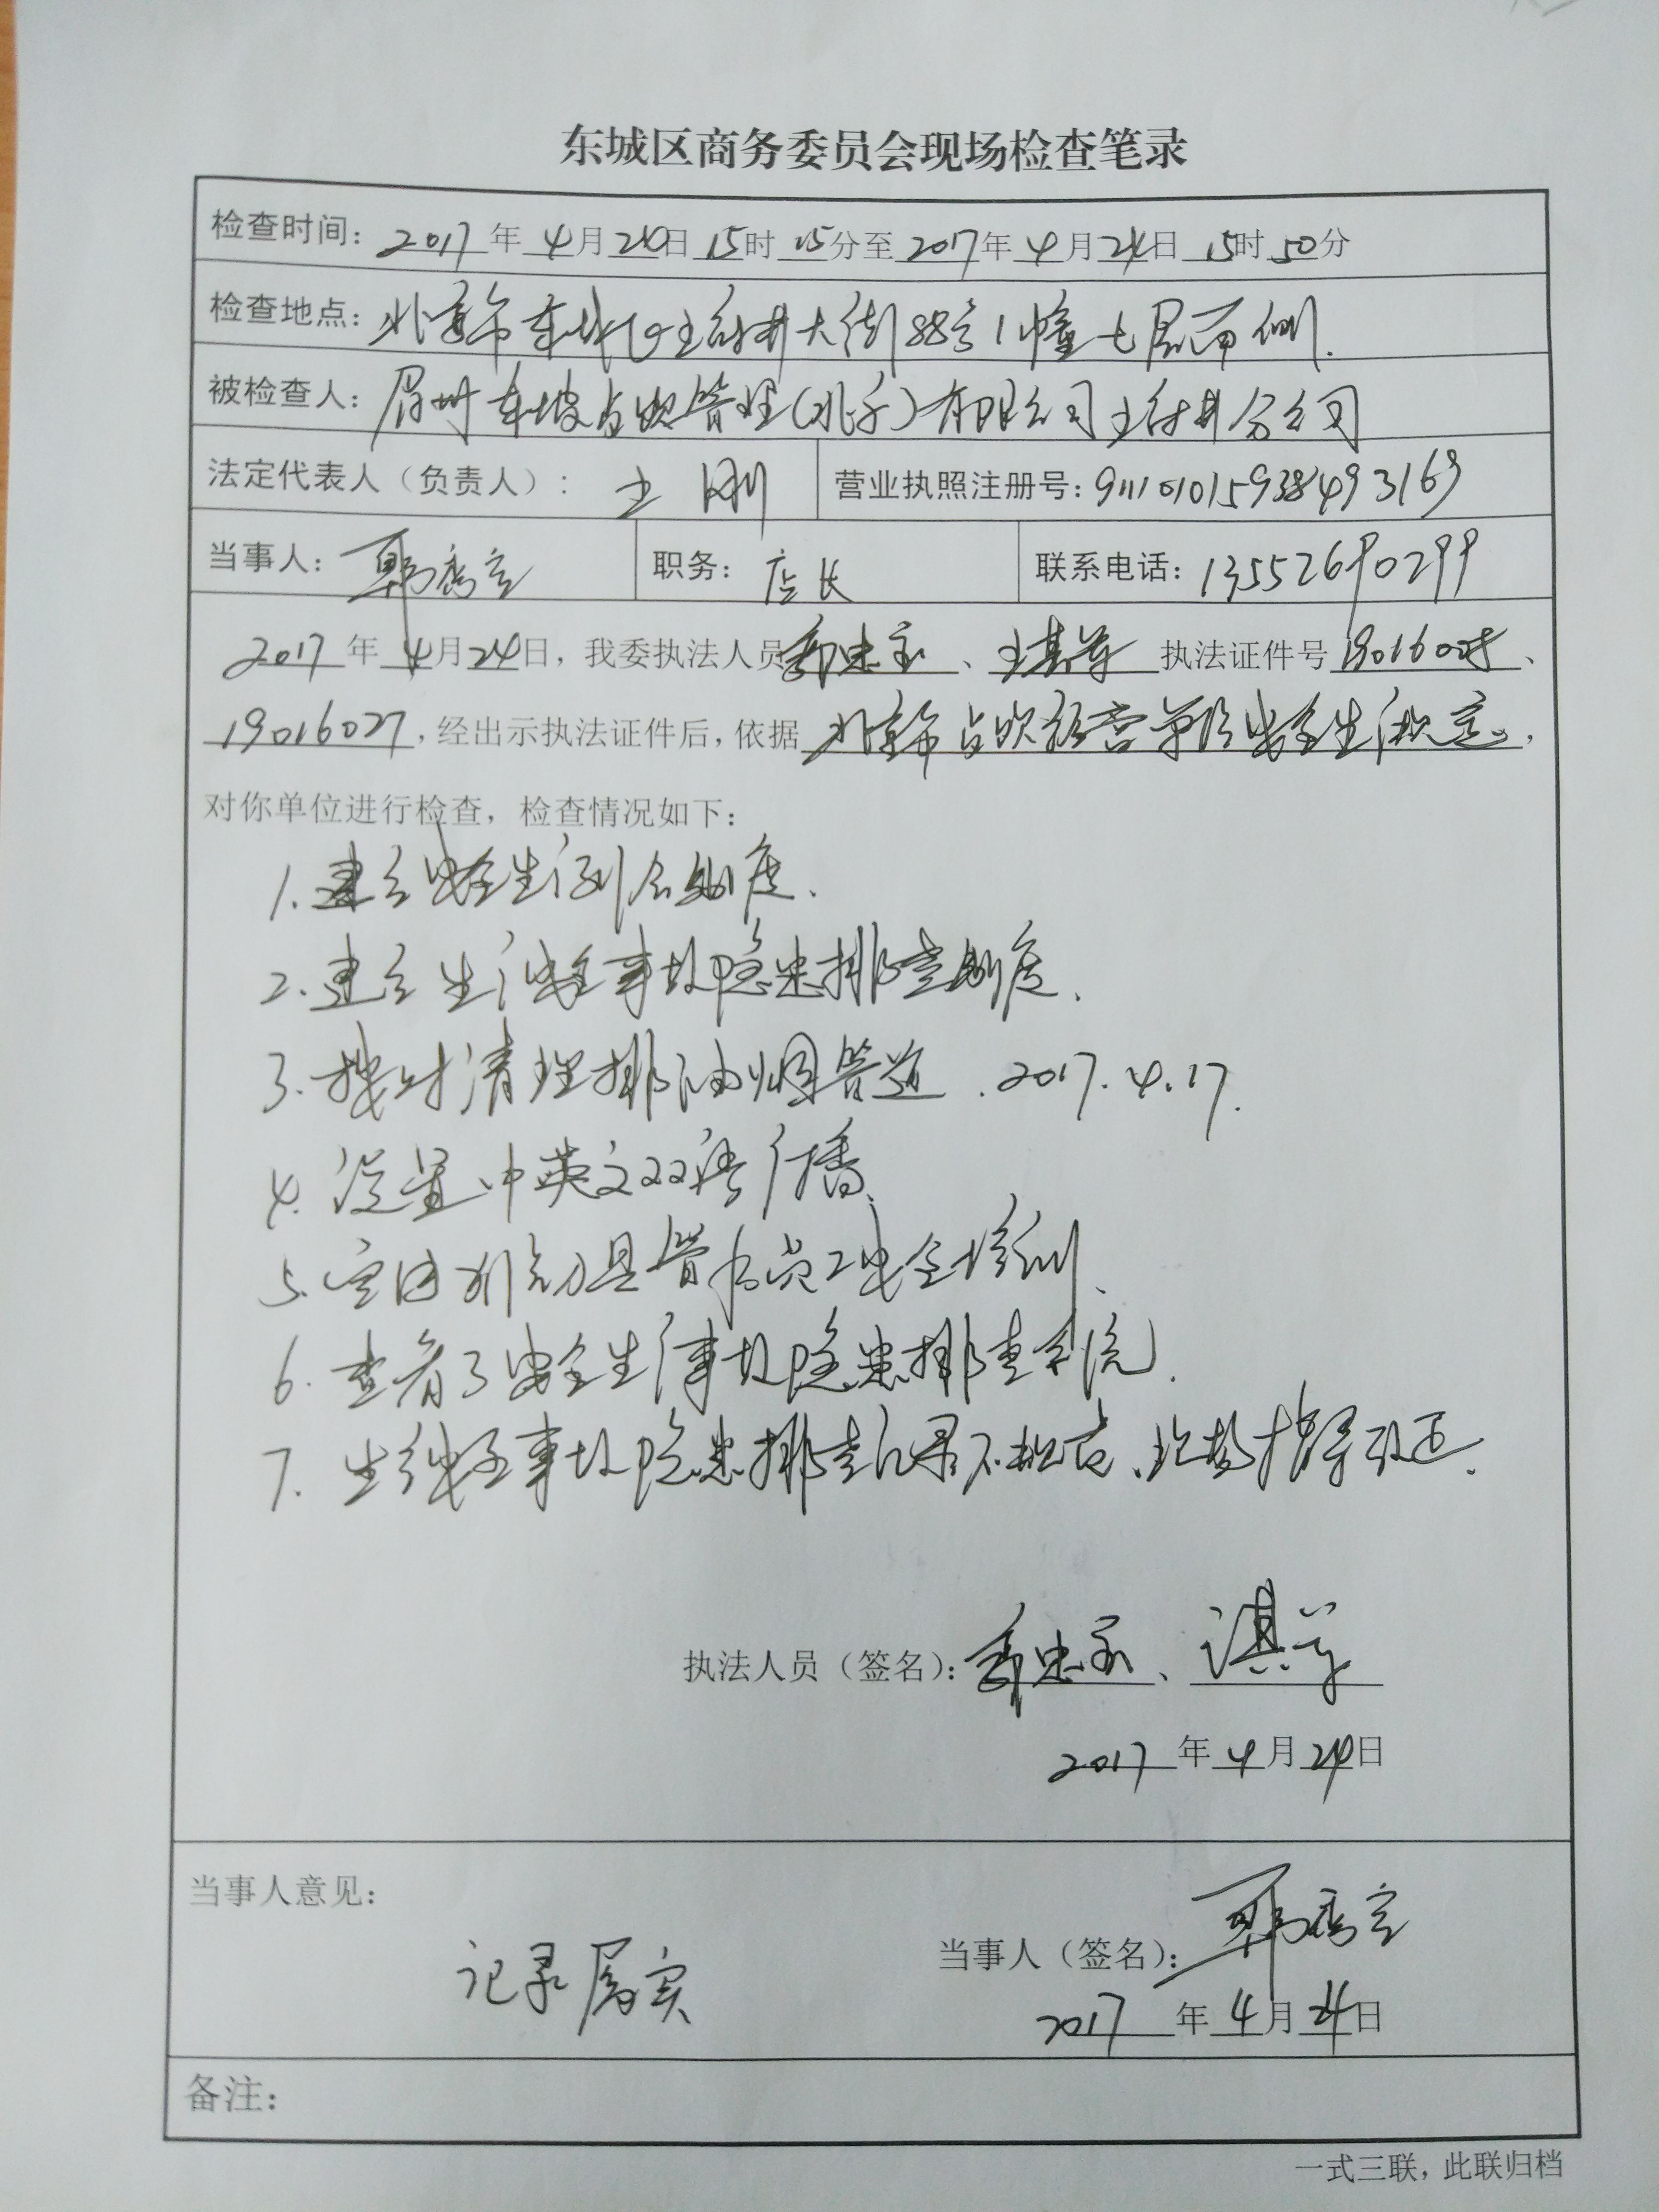 东城区商务委员会现场检查笔录
检查时间：2017年4月24日15时15分至2017年4月24日15时50分
检查地点：北京市东城区王府井大街88号1幢七层西侧.
被检查人：眉州东坡餐饮管理(北京)有限公司王府井分公司
法定代表人（负责人）：王刚 营业执照注册号：911101015938493169
当事人：韩 职务：店长 联系电话：13552690299
2017年4月24日，我委执法人员、执法证件号、
19016027，经出示执法证件后，依据北京市餐饮经营单位安全生产规定，
对你单位进行检查，检查情况如下：
1.建立安全生产例会制度.
2.建立生产安全事故隐患排查制度.
3.按时清理排油烟管道.2017.4.17.
4.设置中英文双语广播.
5.定西刀具管 员工安全培训.
6.查看了安全生产事故隐患排查系统.
7.生产安全事故隐患排查记录不规范、现场指导改正.
执法人员（签名）：、
2017年4月24日
当事人意见：
记录属实
当事人（签名）：韩
2017年4月24日
备注：
一式三联，此联归档